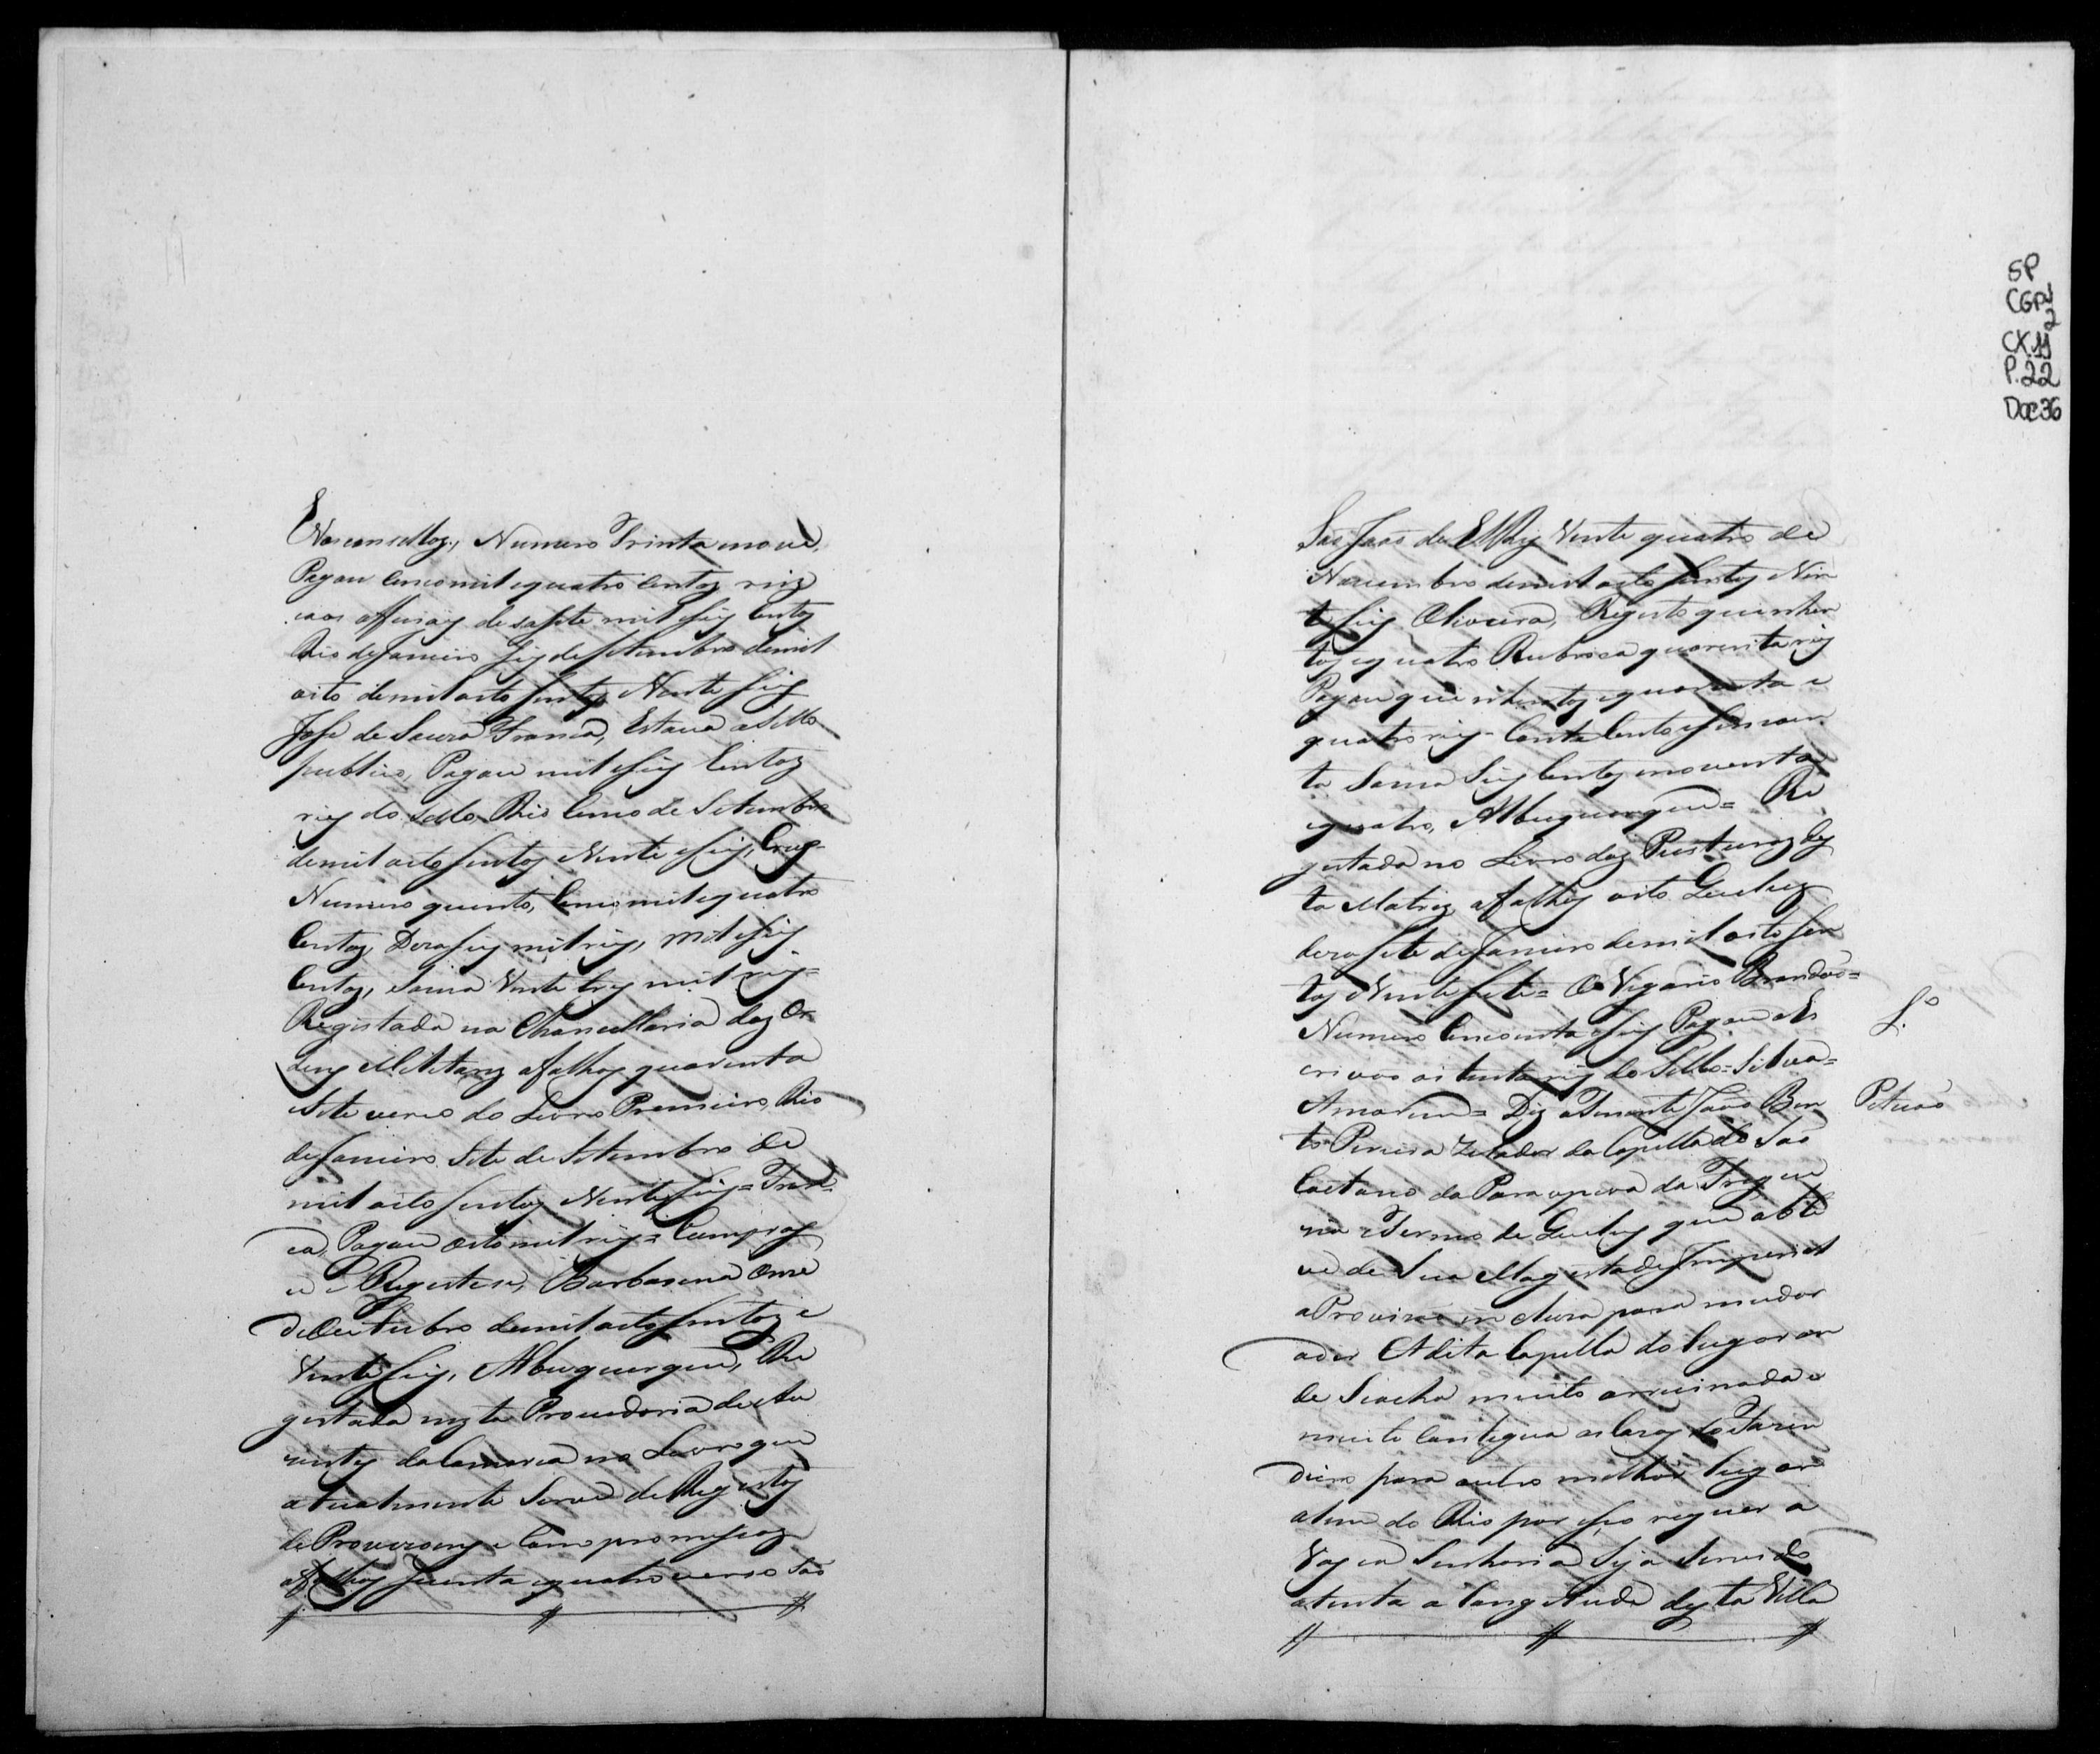 Vasconsellos, Numero Trinta enove,
Pagou cinco mil equatro centos reis
eaos
Rio deJaneiro seis deSetembro demil
oito demil oito sentos Vinte seis
José de Souza França, Estava oSello
publico, Pagou mil eseis centos
reis do Sello Rio cinco de Setembro
demil oito sentos Vinte eseis, Cruz
Numero quinto, cinco mil equatro
centos, Dezaseis mil reis, mil eseis
centos, Soma Vinte tres mil reis =
Registada na Chancellaria das Or
dens Melitares afolhas quarenta
esete verso do Livro Premeiro, Rio
deJaneiro Sete de Setembro de
mil oito sentos Vinte seis = Fran
ca, Pagou oito mil reis = Cumprase
e Registese, Barbacena onze
deOutubro demil oito sentos e
Vinte seis, Albuquerque, Re
gistada nesta Provedoria de Au
zentes daComarca no Livro que
atualmente Serve deRegistos
de Provizoens e Compromissos
afolhas secenta equatro verso São
São João de ElRey Vinte quatro de
Novembro demil oito sentos Vin
te seis Oliveira, Registo quinhen
tos equatro Rubrica quorenta reis
Pagou quinhentos equorenta e
quatro reis = Conta cento esincoen
ta Soma Seis centos enoventa
equatro, Albuquerque = Re
gistada no Livro das Pasturaes des
ta Matriz afolhas oito Queluz
dezasete deJaneiro demil oito sen
tos Vinte Sete = O Vigario Brandão =
Numero Cincoenta eseis Pagou Es
crivão oitenta reis do Sello = Silva =
Amorim = Diz oTenente João Ben
to Pereira Zelador da Capella de São
Caetano da Paraopeva da Fregue
zia eTermo de Queluz que obte
ve de Sua Magestade Imperial
aProvizão in cluza para mudar
ader Adita Capella do lugar on
de Seacha muito arruinada e
muito Contigua as lavras do Tarin
deiro para outro melhor lugar
alem do Rio por isso requer a
Vossa Senhoria Seja Servido
atenta a longetude desta Villa
S.º
Petição
SP
CGP
2
CX.11
P.22
Doc36